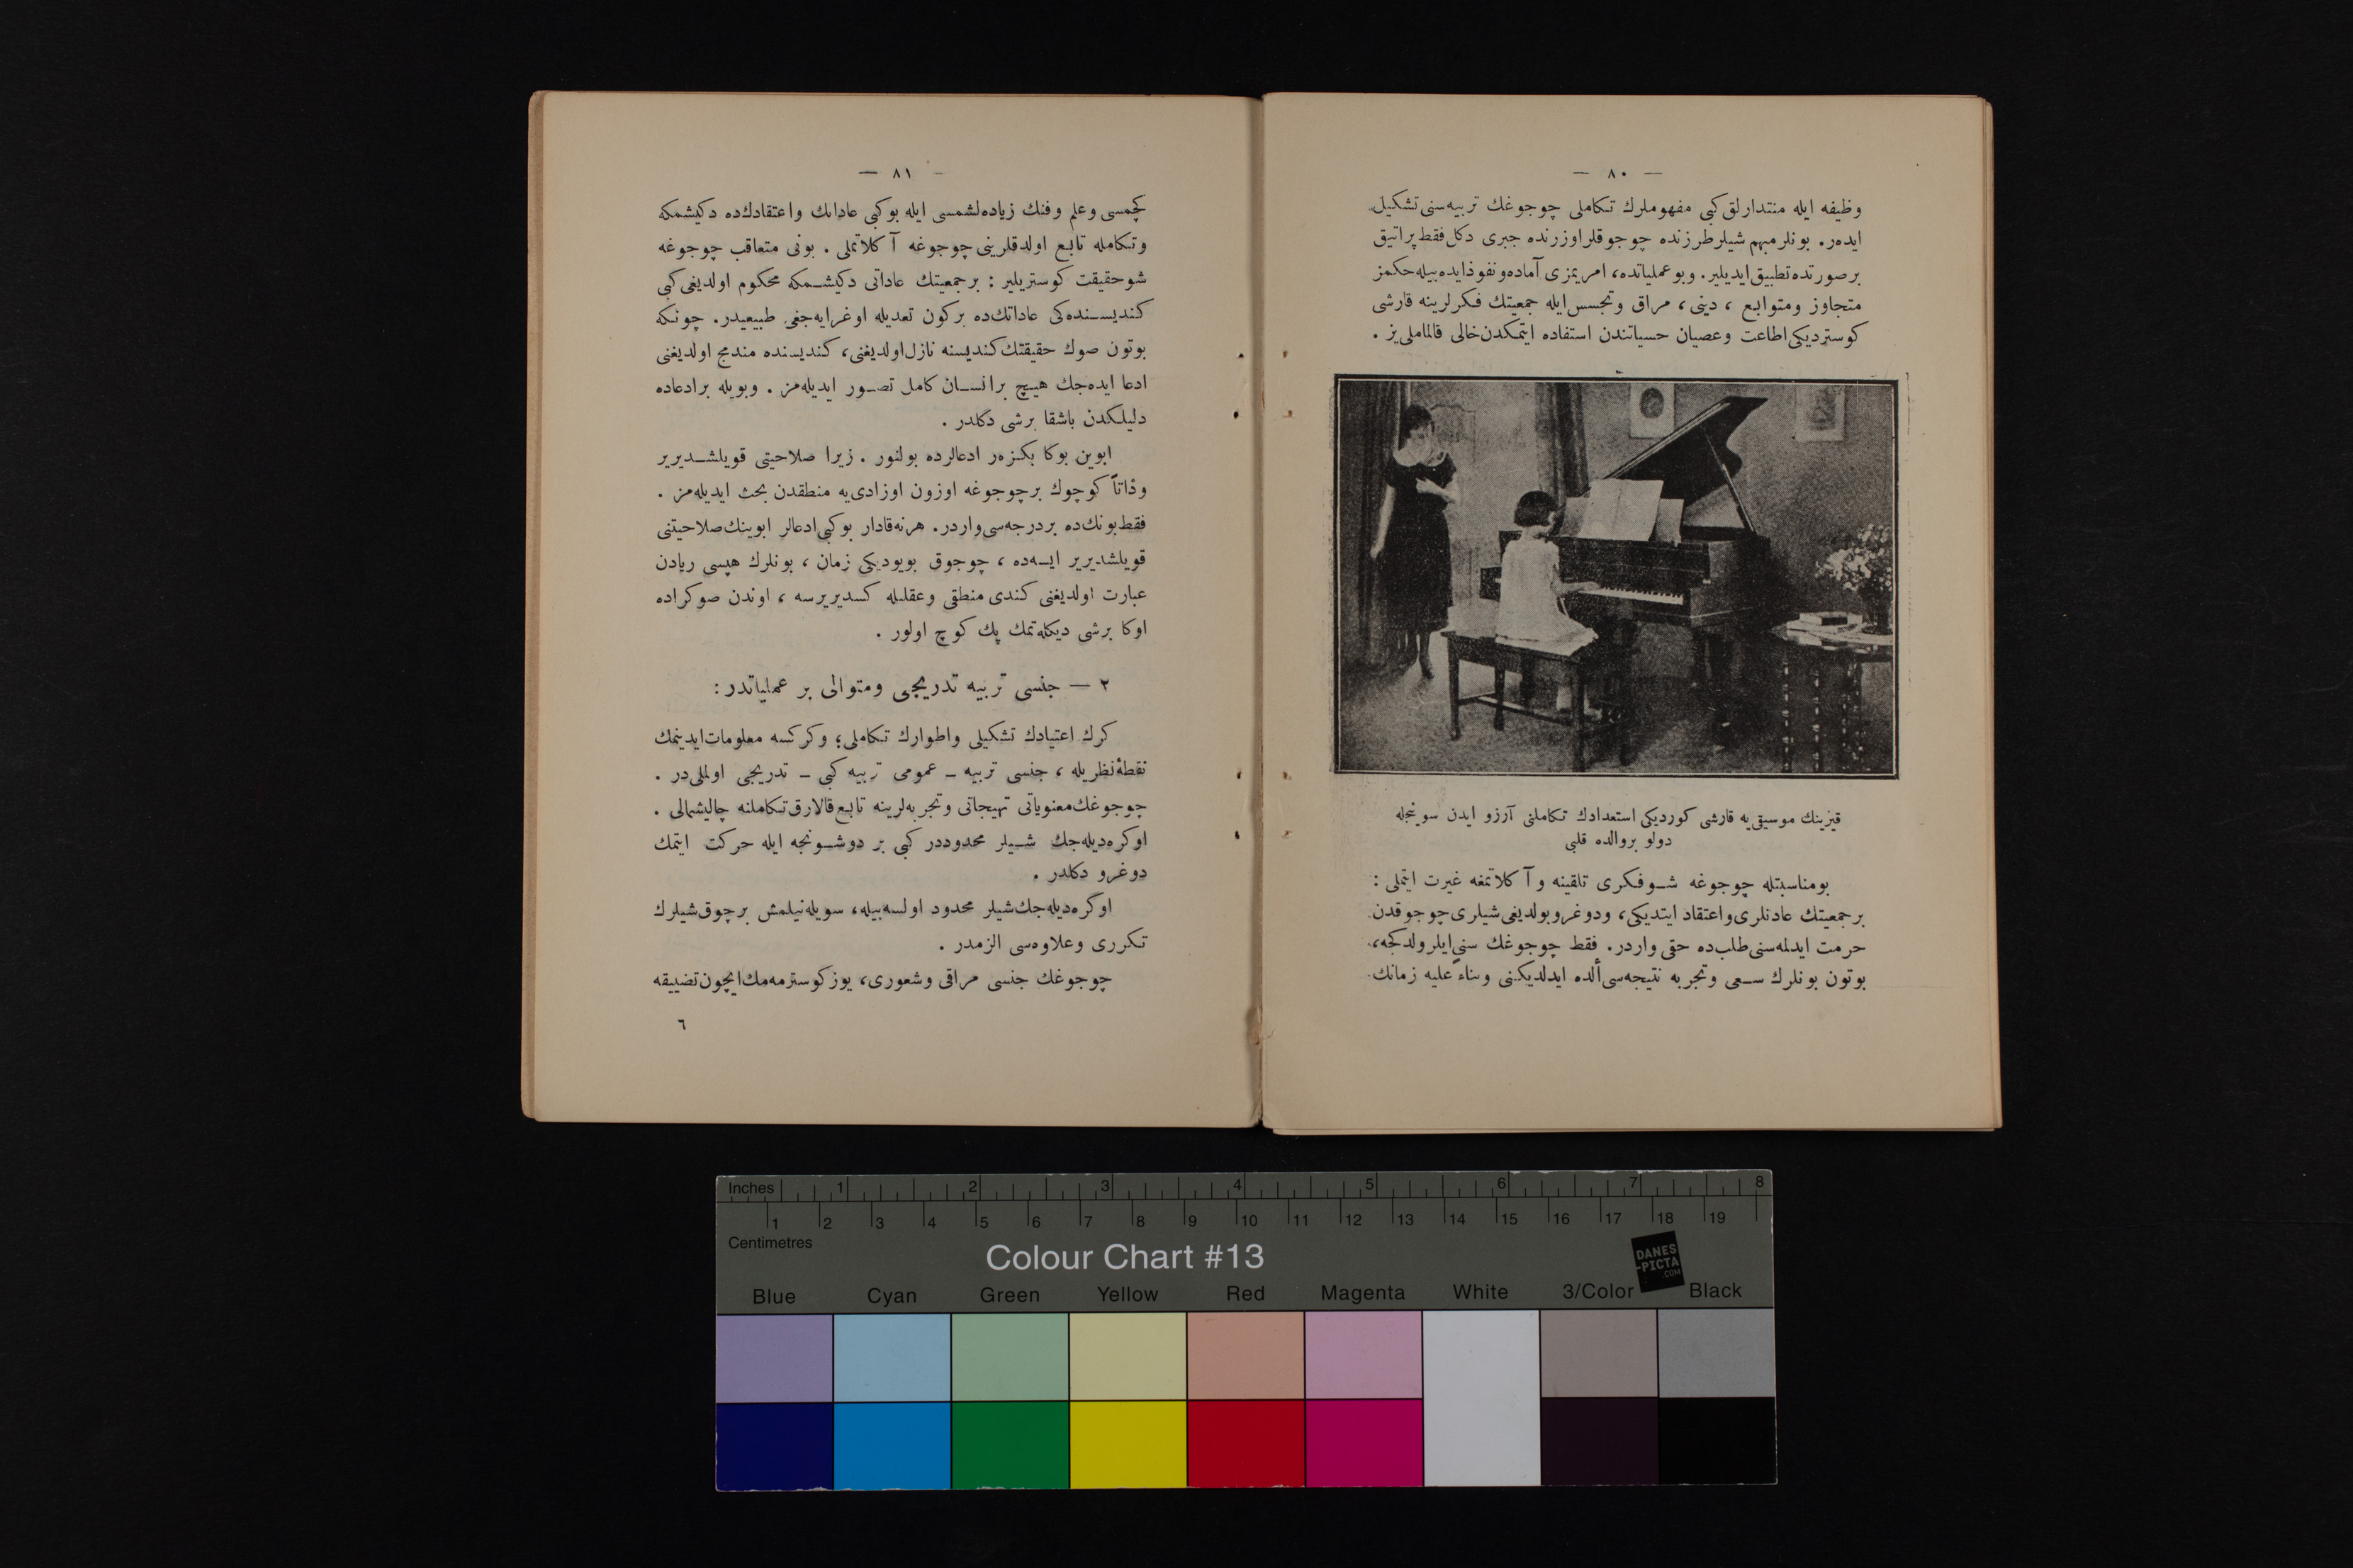 — ٨٠ —
وظیفه ایله منتدارلق کبی مفهوملرك تکاملی چوجوغك تربیه‌سنی تشکیل
ایده‌ر. بونلر مبهم شیلر طرزنده چوجوقلر اوزرنده جبری دکل فقط پراتیق
بر صورتده تطبیق ایدیلیر. وبو عملیاتده، امریمزی آماده ونفوذ ایده بیله‌حکمز
متجاوز ومتوابع ، دینی، مراق وتجسس ایله جمعیتك فکرلرینه قارشی
کوستردیکی اطاعت وعصیان حسیاتندن استفاده ایتمکدن خالی قالماملی یز .
قیزینك موسیقی‌یه قارشی کوردیکی استعدادك تکاملنی آرزو ایدن سوینجله
دولو بر والده قلبی
بومناسبتله چوجوغه شو فکری تلقینه و آکلاتمغه غیرت ایتملی :
بر جمعیتك عادتلری واعتقاد ایتدیکی، ودوغرو بولدیغی شیلری چوجوقدن
حرمت ایدلمه‌سنی طلب‌ده حقی واردر. فقط چوجوغك سنی ایلرولدکجه،
بوتون بونلرك سعی وتجربه نتیجه‌سی ألده ایدلدیکنی وبناءً علیه زمانك
— ٨١ —
کچمسی وعلم وفنك زیاده‌لشمسی ایله بوکبی عاداتك واعتقادك‌ده دکیشمکه
وتکامله تابع اولدقلرینی چوجوغه آکلاتملی . بونی متعاقب چوجوغه
شو حقیقت کوستریلیر : بر جمعیتك عاداتی دکیشمکه محکوم اولدیغی کبی
کندیسنده‌کی عاداتك‌ده برکون تعدیله اوغرایه‌جغی طبیعیدر. چونکه
بوتون صوك حقیقتك کندیسنه نازل اولدیغنی، کندیسنده مندمج اولدیغنی
ادعا ایده‌جك هیچ بر انسان کامل تصور ایدیله‌مز . وبویله بر ادعاده
دلیلکدن باشقا برشی دکلدر .
ابوین بوکا بکزه‌ر ادعالرده بولنور . زیرا صلاحیتی قویلشدیریر
وذاتاً کوچوك بر چوجوغه اوزون اوزادی‌یه منطقدن بحث ایدیله‌مز .
فقط بونك‌ده بر درجه‌سی واردر. هر نه‌قادار بوکبی ادعالر ابوینك صلاحیتنی
قویلشدیریر ایسه‌ده ، چوجوق بویودیکی زمان ، بونلرك هپسی ریادن
عبارت اولدیغنی کندی منطقی وعقلیله کسدیریرسه ، اوندن صوکراده
اوکا برشی دیکله‌تمك پك کوچ اولور .
٢ — جنسی تربیه تدریجی ومتوالی بر عملیاتدر :
کرك اعتیادك تشکیلی واطوارك تکاملی؛ وکرکسه معلومات ایدینمك
نقطهٔ نظریله ، جنسی تربیه – عمومی تربیه کبی – تدریجی اولملی‌در .
چوجوغك معنویاتی تهیجاتی وتجربه‌لرینه تابع قالارق تکاملنه چالیشمالی .
اوکره‌دیله‌جك شیلر محدوددر کبی بر دوشونجه ایله حرکت ایتمك
دوغرو دکلدر .
اوکره‌دیله‌جك شیلر محدود اولسه‌بیله، سویله‌نیلمش بر چوق شیلرك
تکرری وعلاوه‌سی الزمدر .
چوجوغك جنسی مراقی وشعوری، یوز کوسترمه‌مك ایچون تضییقه
٦
Inches 1 2 3 4 5 6 7 8
1 2 3 4 5 6 7 8 9 10 11 12 13 14 15 16 17 18 19
Centimetres
Colour Chart #13
DANES
-PICTA
.COM
Blue Cyan Green Yellow Red Magenta White 3/Color Black